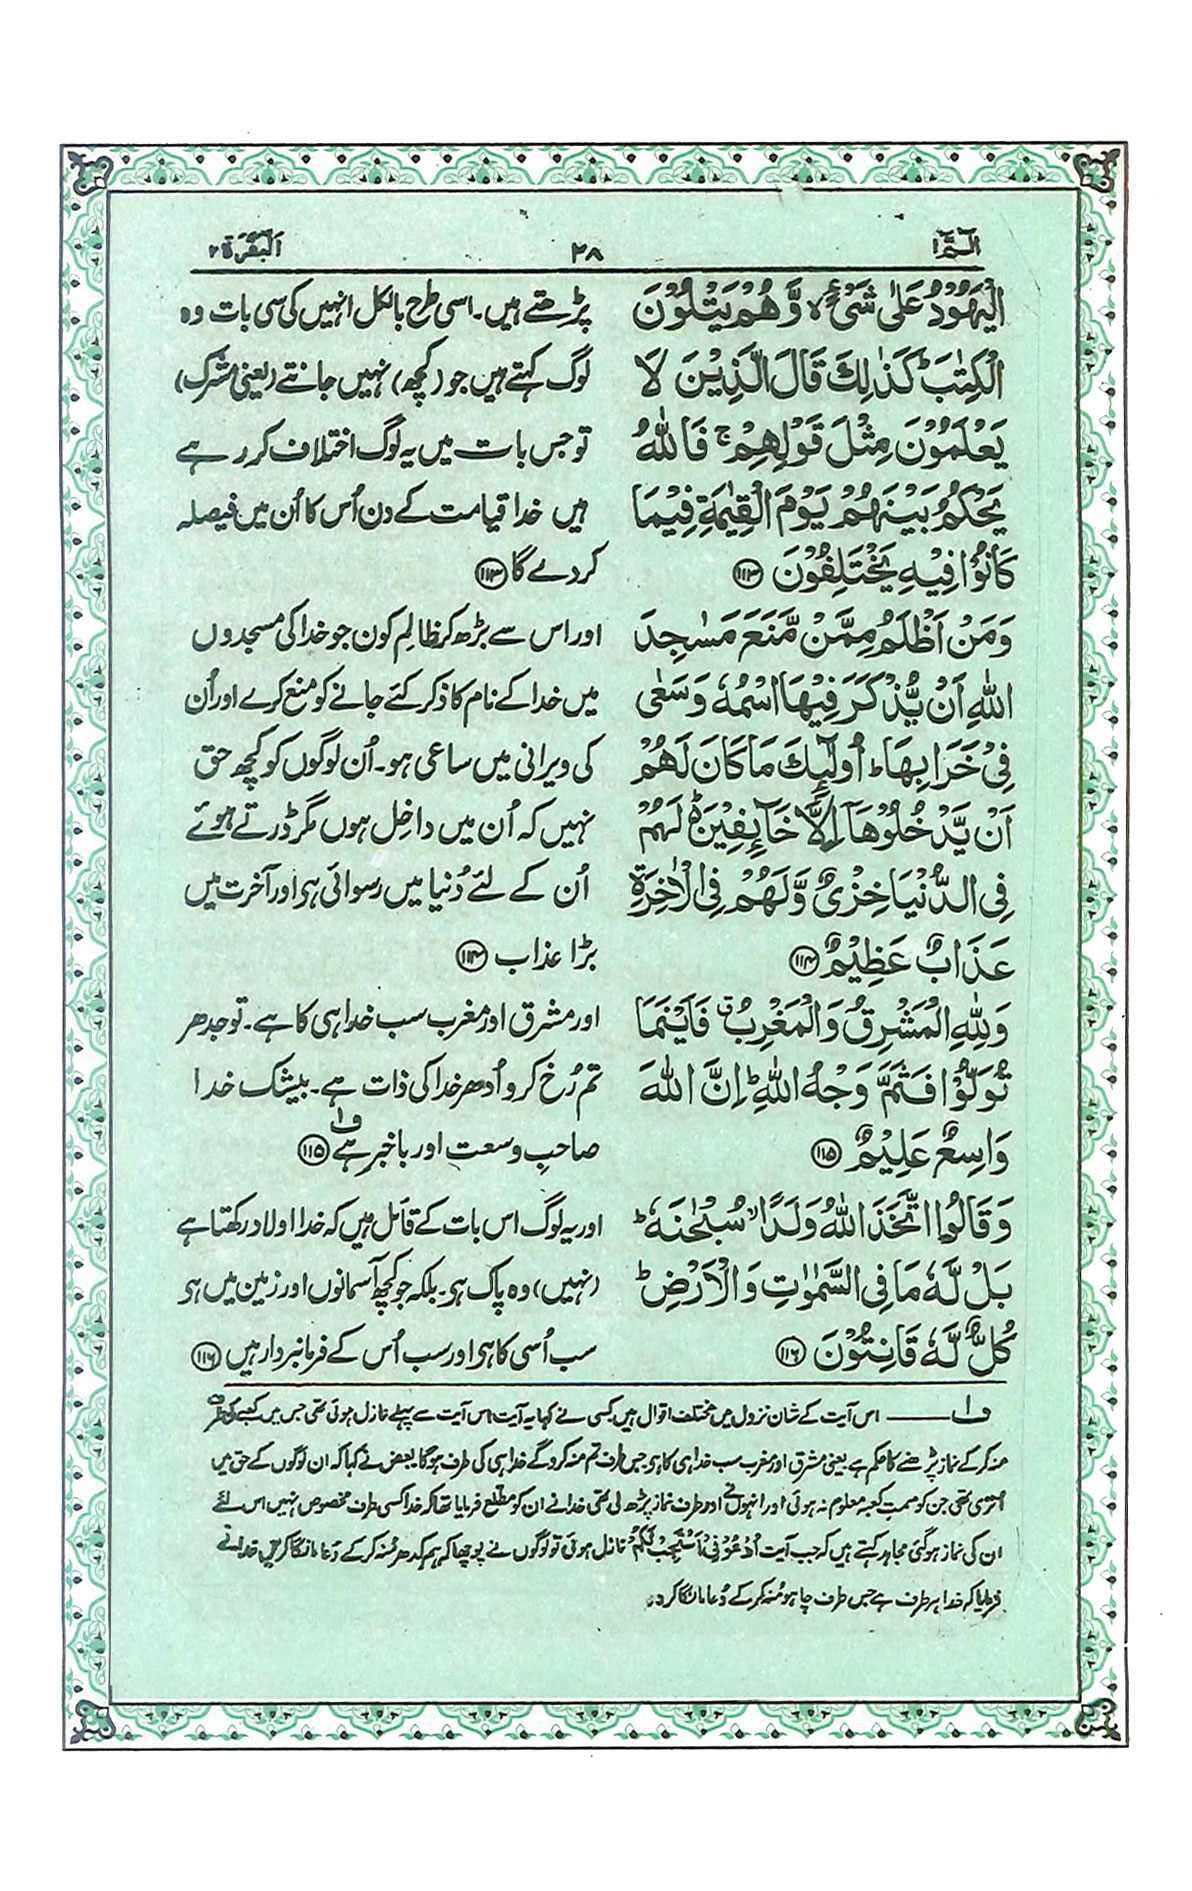 الٓـمّٓ ١
٢٨
اَلْبَقَرَة ٢
الْيَهُوْدُ عَلٰى شَىْءٍ ۙ وَّهُمْ يَتْلُوْنَ
الْكِتٰبَ ؕ كَذٰلِكَ قَالَ الَّذِيْنَ لَا
يَعْلَمُوْنَ مِثْلَ قَوْلِهِمْ ۚ فَاللّٰهُ
يَحْكُمُ بَيْنَهُمْ يَوْمَ الْقِيٰمَةِ فِيْمَا
كَانُوْا فِيْهِ يَخْتَلِفُوْنَ ﴿۱۱۳﴾
وَمَنْ اَظْلَمُ مِمَّنْ مَّنَعَ مَسٰجِدَ
اللّٰهِ اَنْ يُّذْكَرَ فِيْهَا اسْمُهٗ وَسَعٰى
فِىْ خَرَابِهَا ؕ اُولٰٓئِكَ مَا كَانَ لَهُمْ
اَنْ يَّدْخُلُوْهَآ اِلَّا خَآئِفِيْنَ ؕ لَهُمْ
فِى الدُّنْيَا خِزْىٌ وَّلَهُمْ فِى الْاٰخِرَةِ
عَذَابٌ عَظِيْمٌ ﴿۱۱۴﴾
وَلِلّٰهِ الْمَشْرِقُ وَالْمَغْرِبُ ۗ فَاَيْنَمَا
تُوَلُّوْا فَثَمَّ وَجْهُ اللّٰهِ ؕ اِنَّ اللّٰهَ
وَاسِعٌ عَلِيْمٌ ﴿۱۱۵﴾
وَقَالُوا اتَّخَذَ اللّٰهُ وَلَدًا ۙ سُبْحٰنَهٗ ؕ
بَلْ لَّهٗ مَا فِى السَّمٰوٰتِ وَالْاَرْضِ ؕ
كُلٌّ لَّهٗ قَانِتُوْنَ ﴿۱۱۶﴾
پڑھتے ہیں۔ اسی طرح بالکل انہیں کی سی بات وہ
لوگ کہتے ہیں جو (کچھ) نہیں جانتے (یعنی مشرک)
تو جس بات میں یہ لوگ اختلاف کر رہے
ہیں خدا قیامت کے دن اُس کا اُن میں فیصلہ
کر دے گا ﴿۱۱۳﴾
اور اس سے بڑھ کر ظالم کون جو خدا کی مسجدوں
میں خدا کے نام کا ذکر کئے جانے کو منع کرے اور اُن
کی ویرانی میں ساعی ہو۔ اُن لوگوں کو کچھ حق
نہیں کہ اُن میں داخل ہوں مگر ڈرتے ہوئے
اُن کے لئے دُنیا میں رسوائی ہی اور آخرت میں
بڑا عذاب ﴿۱۱۴﴾
اور مشرق اور مغرب سب خدا ہی کا ہے۔ تو جدھر
تم رُخ کرو اُدھر خدا کی ذات ہے۔ بیشک خدا
صاحبِ وسعت اور باخبر ہے ف۱ ﴿۱۱۵﴾
اور یہ لوگ اس بات کے قائل ہیں کہ خدا اولاد رکھتا ہے
(نہیں) وہ پاک ہی۔ بلکہ جو کچھ آسمانوں اور زمین میں ہی
سب اُسی کا ہی اور سب اُس کے فرمانبردار ہیں ﴿۱۱۶﴾
ف۱ اس آیت کے شان نزول میں مختلف اقوال ہیں کسی نے کہا یہ آیت اس آیت سے پہلے نازل ہوئی تھی جس میں کعبے کی طرف
منہ کر کے نماز پڑھنے کا حکم ہے یعنی مشرق اور مغرب سب خدا ہی کا ہی جس طرف تم منہ کرو گے خدا ہی کی طرف ہوگا بعض نے کہا کہ ان لوگوں کے حق میں
اتری تھی جن کو سمتِ کعبہ معلوم نہ ہوئی اور انہوں نے اور طرف نماز پڑھ لی تھی خدا نے ان کو مطلع فرمایا تھا کہ خدا کسی طرف مخصوص نہیں اس لئے
ان کی نماز ہوگئی مجاہد کہتے ہیں کہ جب آیت اُدْعُوْنِیْٓ اَسْتَجِبْ لَكُمْ نازل ہوئی تو لوگوں نے پوچھا کہ ہم کدھر مُنہ کر کے دُعا مانگا کریں خدا نے
فرمایا کہ خدا ہر طرف ہے جس طرف چاہو مُنہ کر کے دُعا مانگا کرو۔